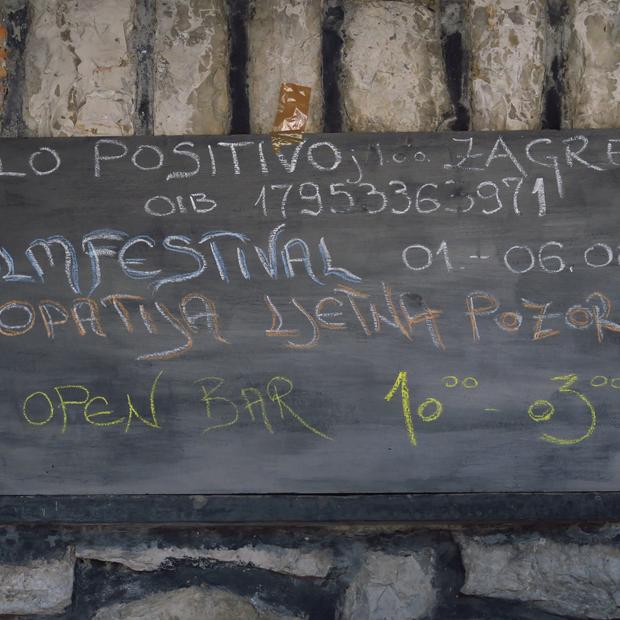 LO POSITIVO j.d.o.o. ZAGRE
OIB 17953363971
LMFESTIVAL 01.-06.0
OPATIJA LJETNA POZOR
OPEN BAR 10⁰⁰ - 03⁰⁰